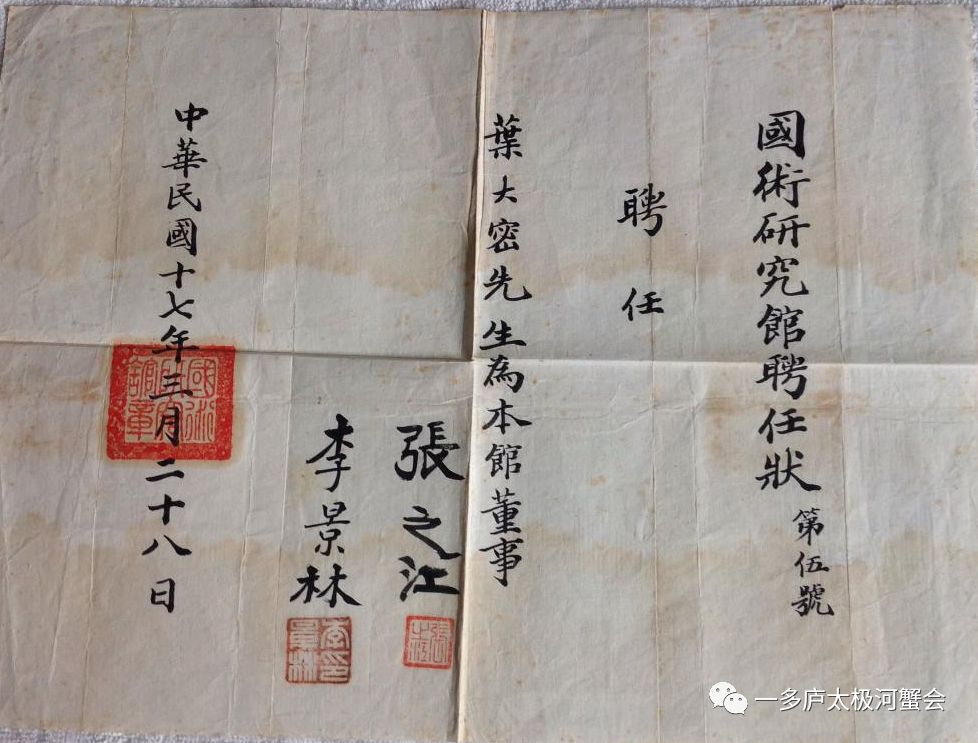 國術研究館聘任狀
第伍號
聘任
葉大密先生為本館董事
張之江
李景林
中華民國十七年三月二十八日
國術研究館章
張之江
李景林印
一多庐太极河蟹会